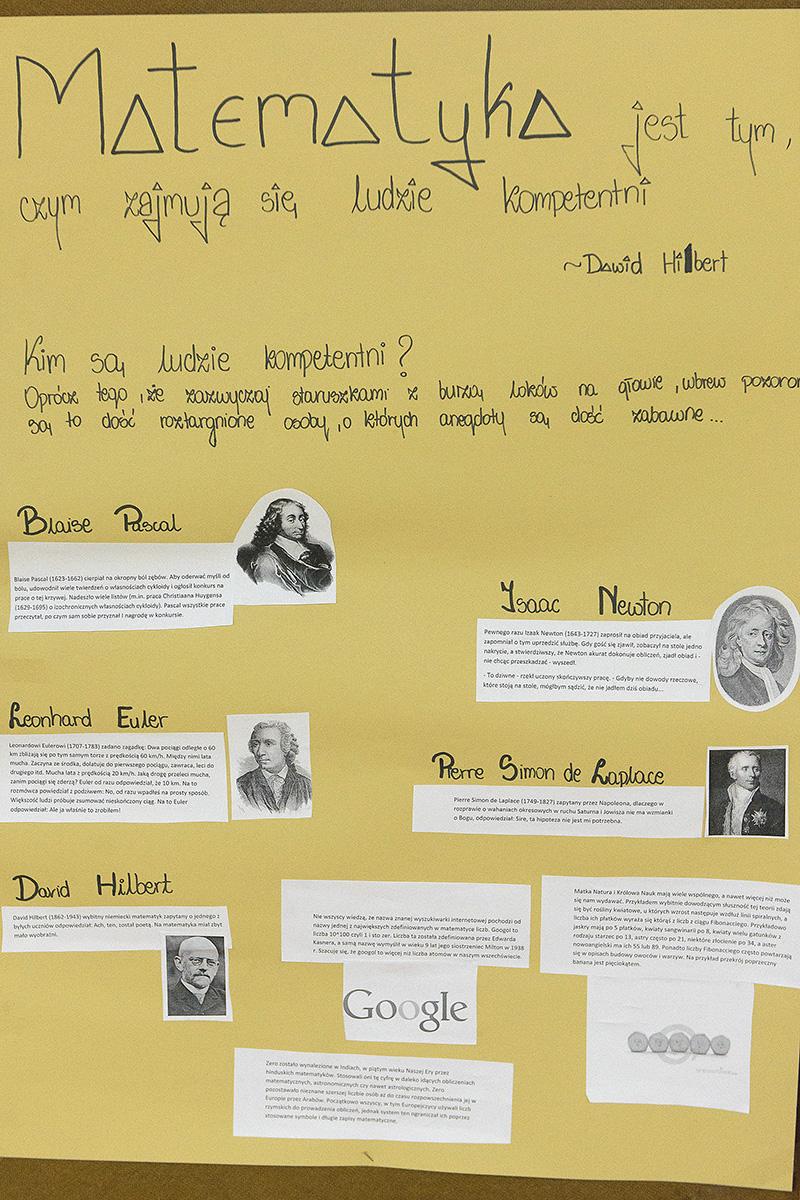 Matematyka jest tym,
czym zajmują się ludzie kompetentni
~Dawid Hilbert
Kim są ludzie kompetentni?
Oprócz tego, że zazwyczaj staruszkami z burzą loków na głowie, wbrew pozorom
są to dość roztargnione osoby, o których anegdoty są dość zabawne...
Blaise Pascal
Blaise Pascal (1623-1662) cierpiał na okropny ból zębów. Aby oderwać myśli od
bólu, udowodnił wiele twierdzeń o własnościach cykloidy i ogłosił konkurs na
prace o tej krzywej. Nadeszło wiele listów (m.in. praca Christiaana Huygensa
(1629-1695) o izochronicznych własnościach cykloidy). Pascal wszystkie prace
przeczytał, po czym sam sobie przyznał I nagrodę w konkursie.
Isaac Newton
Pewnego razu Izaak Newton (1643-1727) zaprosił na obiad przyjaciela, ale
zapomniał o tym uprzedzić służbę. Gdy gość się zjawił, zobaczył na stole jedno
nakrycie, a stwierdziwszy, że Newton akurat dokonuje obliczeń, zjadł obiad i -
nie chcąc przeszkadzać - wyszedł.
- To dziwne - rzekł uczony skończywszy pracę. - Gdyby nie dowody rzeczowe,
które stoją na stole, mógłbym sądzić, że nie jadłem dziś obiadu...
Leonhard Euler
Leonardowi Eulerowi (1707-1783) zadano zagadkę: Dwa pociągi odległe o 60
km zbliżają się po tym samym torze z prędkością 60 km/h. Między nimi lata
mucha. Zaczyna ze środka, dolatuje do pierwszego pociągu, zawraca, leci do
drugiego itd. Mucha lata z prędkością 20 km/h. Jaką drogę przeleci mucha,
zanim pociągi się zderzą? Euler od razu odpowiedział, że 10 km. Na to
rozmówca powiedział z podziwem: No, od razu wpadłeś na prosty sposób.
Większość ludzi próbuje zsumować nieskończony ciąg. Na to Euler
odpowiedział: Ale ja właśnie to zrobiłem!
Pierre Simon de Laplace
Pierre Simon de Laplace (1749-1827) zapytany przez Napoleona, dlaczego w
rozprawie o wahaniach okresowych w ruchu Saturna i Jowisza nie ma wzmianki
o Bogu, odpowiedział: Sire, ta hipoteza nie jest mi potrzebna.
David Hilbert
David Hilbert (1862-1943) wybitny niemiecki matematyk zapytany o jednego z
byłych uczniów odpowiedział: Ach, ten, został poetą. Na matematyka miał zbyt
mało wyobraźni.
Nie wszyscy wiedzą, że nazwa znanej wyszukiwarki internetowej pochodzi od
nazwy jednej z największych zdefiniowanych w matematyce liczb. Googol to
liczba 10^100 czyli 1 i sto zer. Liczba ta została zdefiniowana przez Edwarda
Kasnera, a samą nazwę wymyślił w wieku 9 lat jego siostrzeniec Milton w 1938
r. Szacuje się, że googol to więcej niż liczba atomów w naszym wszechświecie.
Google
Matka Natura i Królowa Nauk mają wiele wspólnego, a nawet więcej niż może
się nam wydawać. Przykładem wybitnie dowodzącym słuszność tej teorii zdają
się być rośliny kwiatowe, u których wzrost następuje wzdłuż linii spiralnych, a
liczba ich płatków wyraża się którąś z liczb z ciągu Fibonacciego. Przykładowo
jaskry mają po 5 płatków, kwiaty sangwinarii po 8, kwiaty wielu gatunków z
rodzaju starzec po 13, astry często po 21, niektóre złocienie po 34, a aster
nowoangielski ma ich 55 lub 89. Ponadto liczby Fibonacciego często powtarzają
się w opisach budowy owoców i warzyw. Na przykład przekrój poprzeczny
banana jest pięciokątem.
Zero zostało wynalezione w Indiach, w piątym wieku Naszej Ery przez
hinduskich matematyków. Stosowali oni tę cyfrę w daleko idących obliczeniach
matematycznych, astronomicznych czy nawet astrologicznych. Zero
pozostawało nieznane szerszej liczbie osób aż do czasu rozpowszechnienia jej w
Europie przez Arabów. Początkowo wszyscy, w tym Europejczycy używali liczb
rzymskich do prowadzenia obliczeń, jednak system ten ograniczał ich poprzez
stosowane symbole i długie zapisy matematyczne.